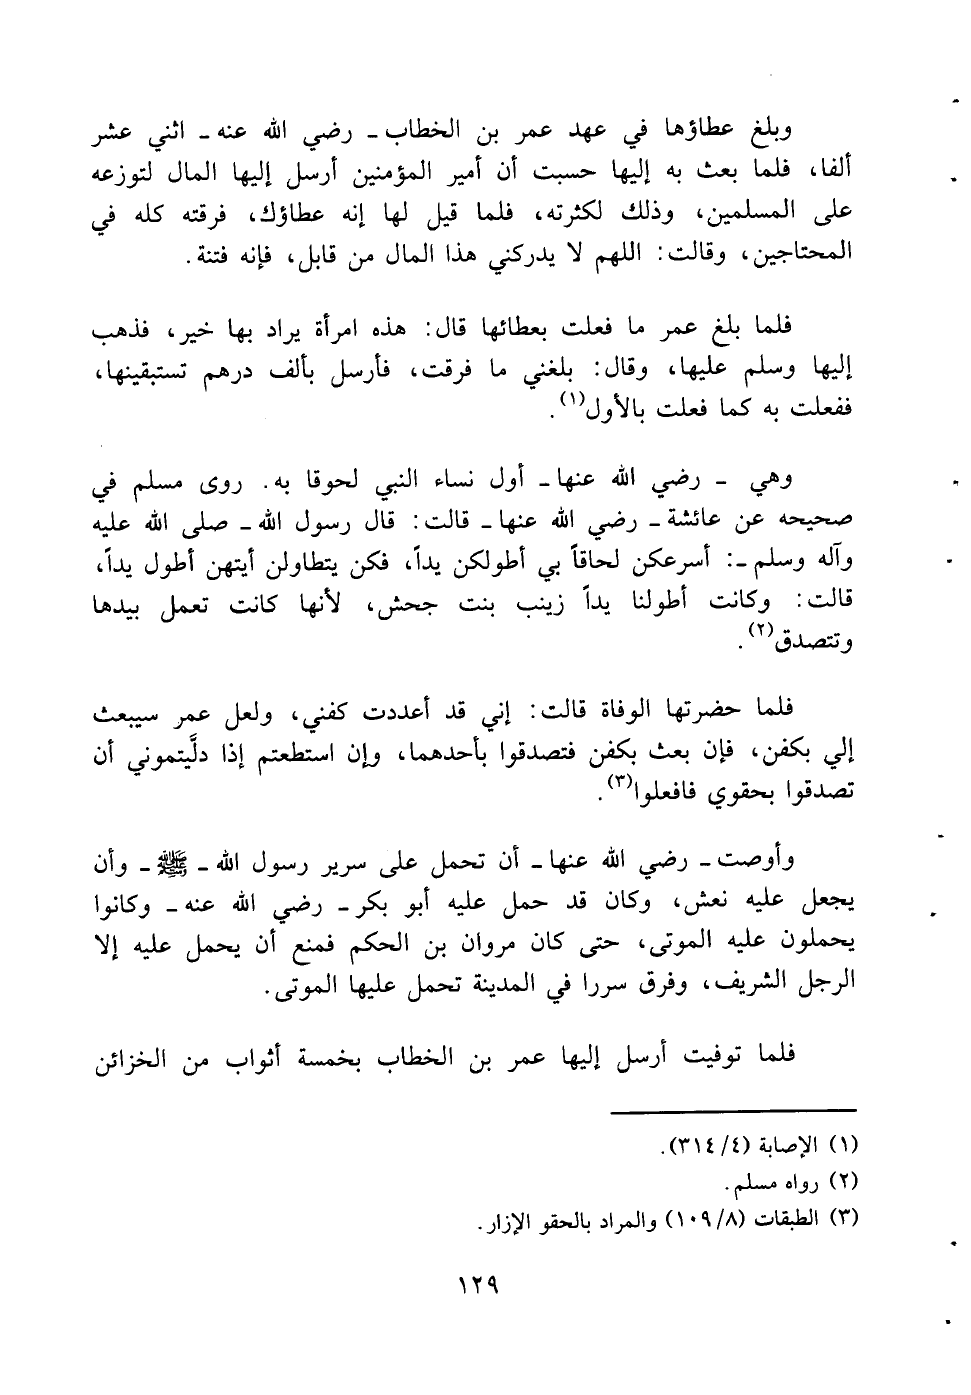 وبلغ عطاؤها في عهد عمر بن الخطاب ـ رضي الله عنه ـ اثني عشر
ألفا، فلما بعث به إليها حسبت أن أمير المؤمنين أرسل إليها المال لتوزعه
على المسلمين، وذلك لكثرته، فلما قيل لها إنه عطاؤك، فرقته كله في
المحتاجين، وقالت: اللهم لا يدركني هذا المال من قابل، فإنه فتنة.
فلما بلغ عمر ما فعلت بعطائها قال: هذه امرأة يراد بها خير، فذهب
إليها وسلم عليها، وقال: بلغني ما فرقت، فأرسل بألف درهم تستبقينها،
ففعلت به كما فعلت بالأول(١).
وهي ـ رضي الله عنها ـ أول نساء النبي لحوقا به. روى مسلم في
صحيحه عن عائشة ـ رضي الله عنها ـ قالت: قال رسول الله ـ صلى الله عليه
وآله وسلم ـ: أسرعكن لحاقاً بي أطولكن يداً، فكن يتطاولن أيتهن أطول يداً،
قالت: وكانت أطولنا يداً زينب بنت جحش، لأنها كانت تعمل بيدها
وتتصدق(٢).
فلما حضرتها الوفاة قالت: إني قد أعددت كفني، ولعل عمر سيبعث
إلي بكفن، فإن بعث بكفن فتصدقوا بأحدهما، وإن استطعتم إذا دلَّيتموني أن
تصدقوا بحقوي فافعلوا(٣).
وأوصت ـ رضي الله عنها ـ أن تحمل على سرير رسول الله ـ ﷺ ـ وأن
يجعل عليه نعش، وكان قد حمل عليه أبو بكر ـ رضي الله عنه ـ وكانوا
يحملون عليه الموتى، حتى كان مروان بن الحكم فمنع أن يحمل عليه إلا
الرجل الشريف، وفرق سررا في المدينة تحمل عليها الموتى.
فلما توفيت أرسل إليها عمر بن الخطاب بخمسة أثواب من الخزائن
(١) الإصابة (٣١٤/٤).
(٢) رواه مسلم.
(٣) الطبقات (١٠٩/٨) والمراد بالحقو الإزار.
١٢٩